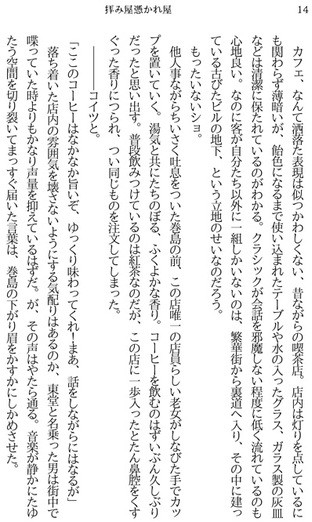 拝み屋憑かれ屋
14
カフェ、なんて洒落た表現は似つかわしくない、昔ながらの喫茶店。店内は灯りを点しているに
も関わらず薄暗いが、飴色になるまで使い込まれたテーブルや水の入ったグラス、ガラス製の灰皿
などは清潔に保たれているのがわかる。クラシックが会話を邪魔しない程度に低く流れているのも
心地良い。なのに客が自分たち以外に一組しかいないのは、繁華街から裏道へ入り、その中に建っ
ている古びたビルの地下、という立地のせいなのだろう。
もったいないショ。
他人事ながらちいさく吐息をついた巻島の前、この店唯一の店員らしい老女がしなびた手でカッ
プを置いていく。湯気と共にたちのぼる、ふくよかな香り。コーヒーを飲むのはずいぶん久しぶり
だったと思い出す。普段飲みつけているのは紅茶なのだが、この店に一歩入ったとたん鼻腔をくす
ぐった香りにつられ、つい同じものを注文してしまった。
――――コイツと。
「ここのコーヒーはなかなか旨いぞ、ゆっくり味わってくれ――まあ、話をしながらにはなるが」
落ち着いた店内の雰囲気を壊さないようにする気配りはあるのか、東堂と名乗った男は街中で
喋っていた時よりもかなり声量を抑えているはずだ。が、その声はやたら通る。音楽が静かにたゆ
たう空間を切り裂いてまっすぐ届いた言葉は、巻島の下がり眉をかすかにしかめさせた。